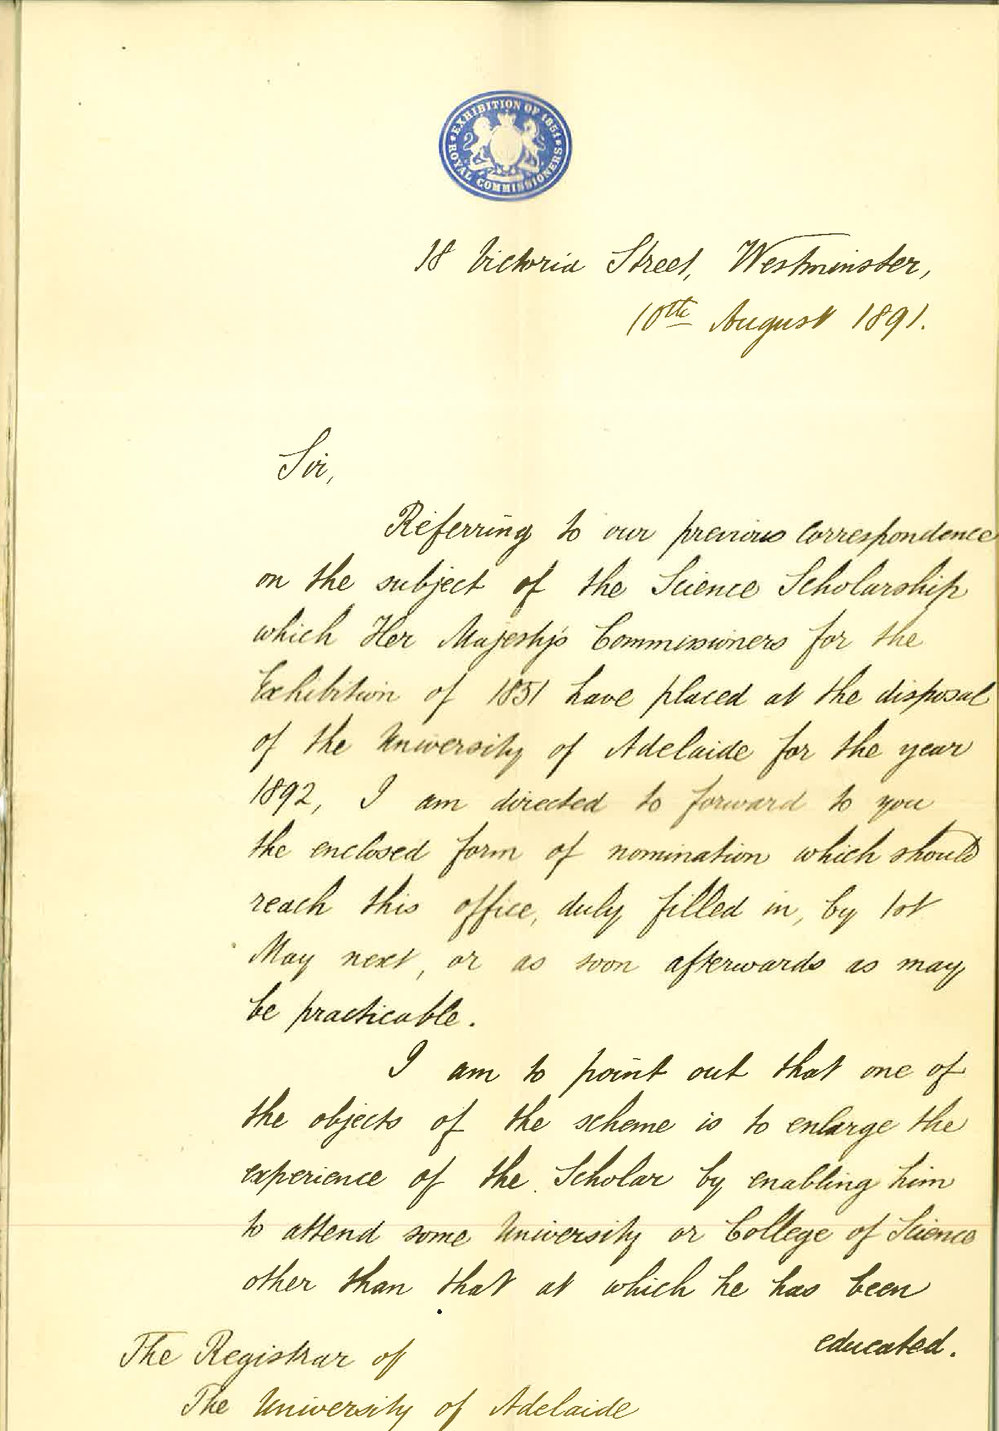 EXHIBITION OF 1851
ROYAL COMMISSIONERS
18 Victoria Street, Westminster,
10th August 1891.
Sir,
Referring to our previous correspondence
on the subject of the Science Scholarship
which Her Majesty's Commissioners for the
Exhibition of 1851 have placed at the disposal
of the University of Adelaide for the year
1892, I am directed to forward to you
the enclosed form of nomination which should
reach this office, duly filled in, by 1st
May next, or as soon afterwards as may
be practicable.
I am to point out that one of
the objects of the scheme is to enlarge the
experience of the Scholar by enabling him
to attend some University or College of Science
other than that at which he has been
educated.
The Registrar of
The University of Adelaide